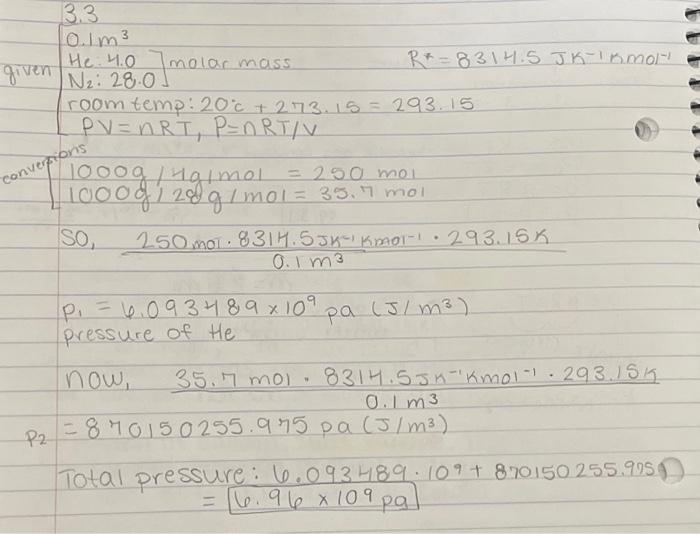 3.3
0.1m³
given He: 4.0 ] molar mass R* = 8314.5 JK⁻¹Kmol⁻¹
N₂: 28.0
room temp: 20°c + 273.15 = 293.15
PV = nRT, P = nRT/V
conversions
1000g / 4g/mol = 250 mol
1000g / 28g/mol = 35.7 mol
SO, 250 mol · 8314.5 JK⁻¹Kmol⁻¹ · 293.15K
0.1m³
P₁ = 6.093489 x 10⁹ pa (J/m³)
pressure of He
now, 35.7 mol · 8314.5 JK⁻¹Kmol⁻¹ · 293.15K
0.1m³
P₂ = 870150255.975 pa (J/m³)
Total pressure: 6.093489 · 10⁹ + 870150255.975
= 6.96 x 10⁹ pa